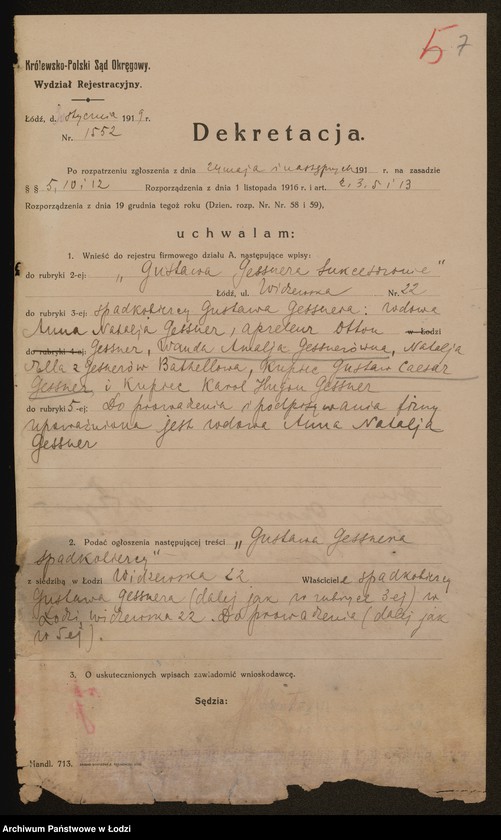 5 7
Królewsko-Polski Sąd Okręgowy.
Wydział Rejestracyjny.
Łódź, d. stycznia 1919 r.
Nr. 1552
Dekretacja.
Po rozpatrzeniu zgłoszenia z dnia 24 maja i następnych 191 r. na zasadzie
§ § 5, 10 i 12 Rozporządzenia z dnia 1 listopada 1916 r. i art. 2. 3. 5 i 13
Rozporządzenia z dnia 19 grudnia tegoż roku (Dzien. rozp. Nr. Nr. 58 i 59).
uchwalam:
1. Wnieść do rejestru firmowego działu A. następujące wpisy:
do rubryki 2-ej: „Gustawa Gessnera Sukcesorowie"
Łódź, ul. Widzewska Nr. 22
do rubryki 3-ej: spadkobiercy Gustawa Gessnera: wdowa
Anna Natalja Gessner, apreteur Otton w Łodzi
do rubryki 4-ej: Gessner, Wanda Amelja Gessnerówna, Natalja
Ella z Gesnerów Bathellowa, Kupiec Gustaw Caesar
Gessner i Kupiec Karol Hugon Gessner
do rubryki 5-ej: Do prowadzenia i podpisywania firmy
upoważniona jest wdowa Anna Natalja
Gessner
2. Podać ogłoszenia następującej treści „Gustawa Gessnera
spadkobiercy"
z siedzibą w Łodzi Widzewska 22 Właściciele spadkobiercy
Gustawa Gessnera (dalej jak w rubryce 3ej) w
Łodzi, Widzewska 22. Do prowadzenia (dalej jak
w 5ej).
3. O uskutecznionych wpisach zawiadomić wnioskodawcę.
Sędzia:
Handl. 713.
Archiwum Państwowe w Łodzi